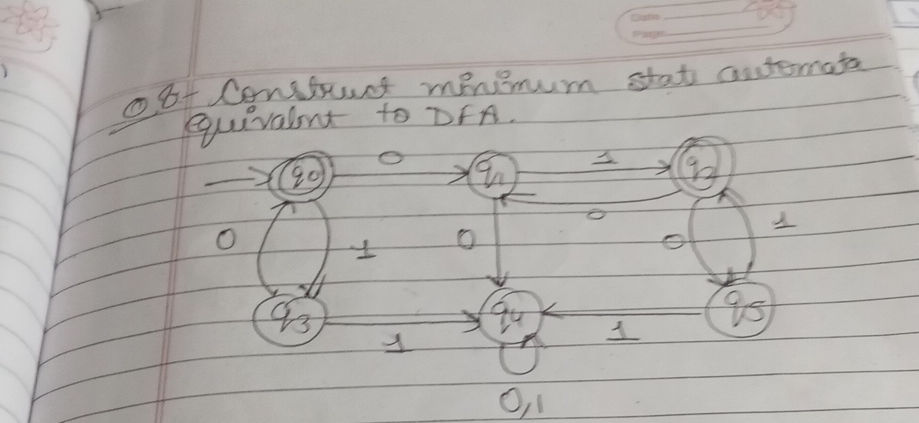 Date
Page
Q.8- Construct minimum stat automata
equivalent to DFA.
q0 0 q1 1 q2
0
0 1 0 0 1
q3 q4 q5
1 1
0,1